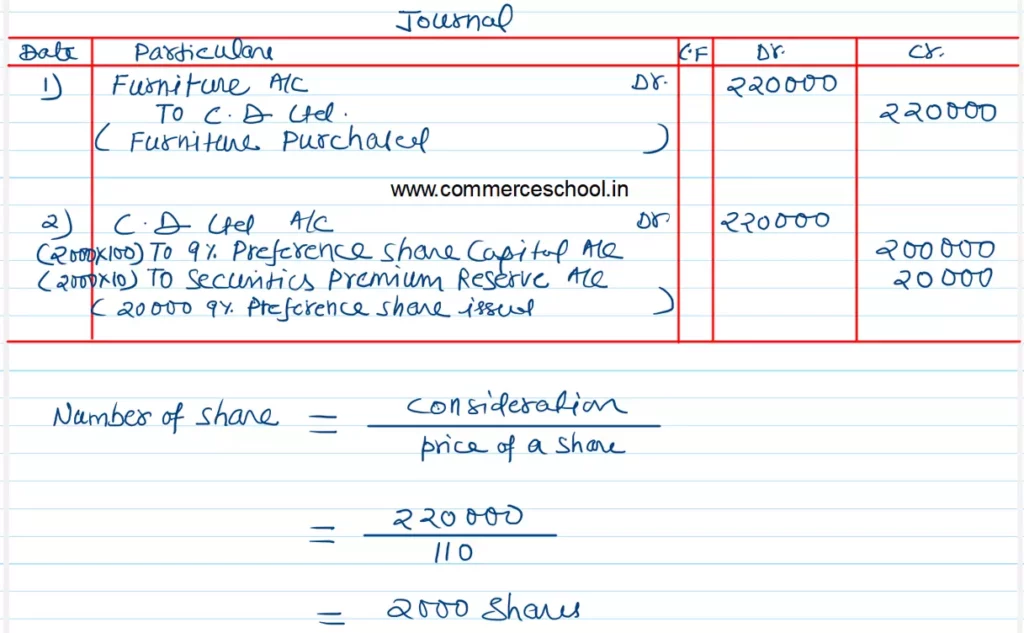 Journal
Date Particulars C.F Dr. Cr.
1) Furniture A/c Dr. 220000
To C.D Ltd. 220000
( Furniture Purchased )
www.commerceschool.in
2) C.D Ltd A/c Dr 220000
(2000x100) To 9% Preference Share Capital A/c 200000
(2000x10) To Securities Premium Reserve A/c 20000
( 20000 9% Preference share issued )
Number of share = consideration
price of a share
= 220000
110
= 2000 Shares